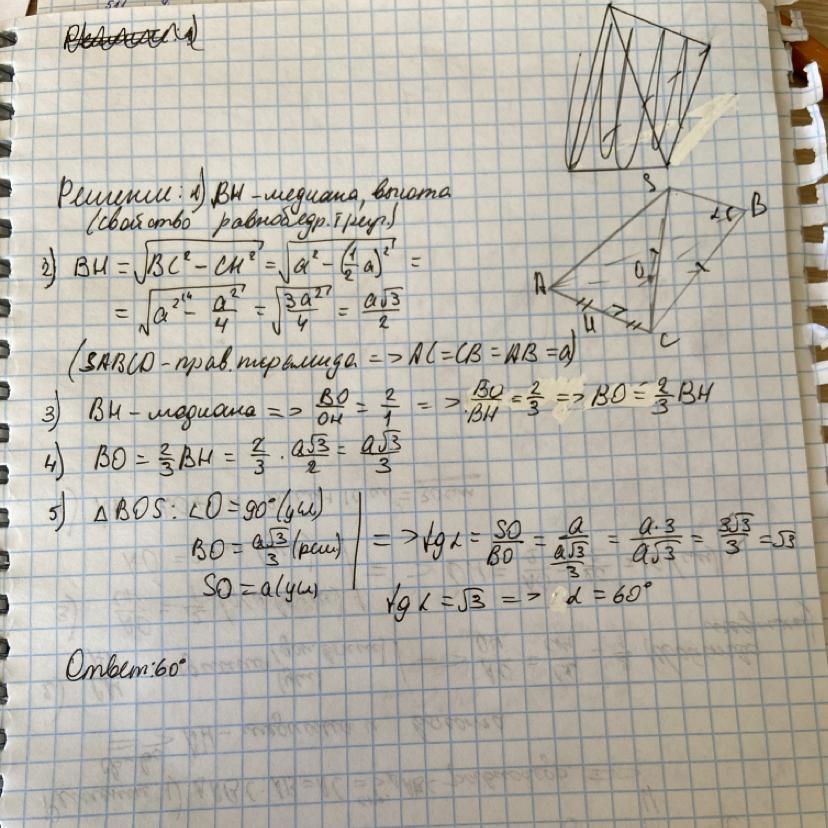 Решение: 1) BH – медиана, высота
(свойство равнобедр. треуг.)
2) BH = √(BC² − CH²) = √(a² − (1/2 a)²) =
= √(a² − a²/4) = √(3a²/4) = a√3/2
(SABCD – прав. пирамида => AC = CB = AB = a)
3) BH – медиана => BO/OH = 2/1 => BO/BH = 2/3 => BO = 2/3 BH
4) BO = 2/3 BH = 2/3 · a√3/2 = a√3/3
5) △BOS: ∠O = 90° (усл)
BO = a√3/3 (реш)
SO = a (усл)
=> tg α = SO/BO = a/(a√3/3) = a·3/a√3 = 3√3/3 = √3
tg α = √3 => α = 60°
Ответ: 60°
S
B
α
O
A
H
C